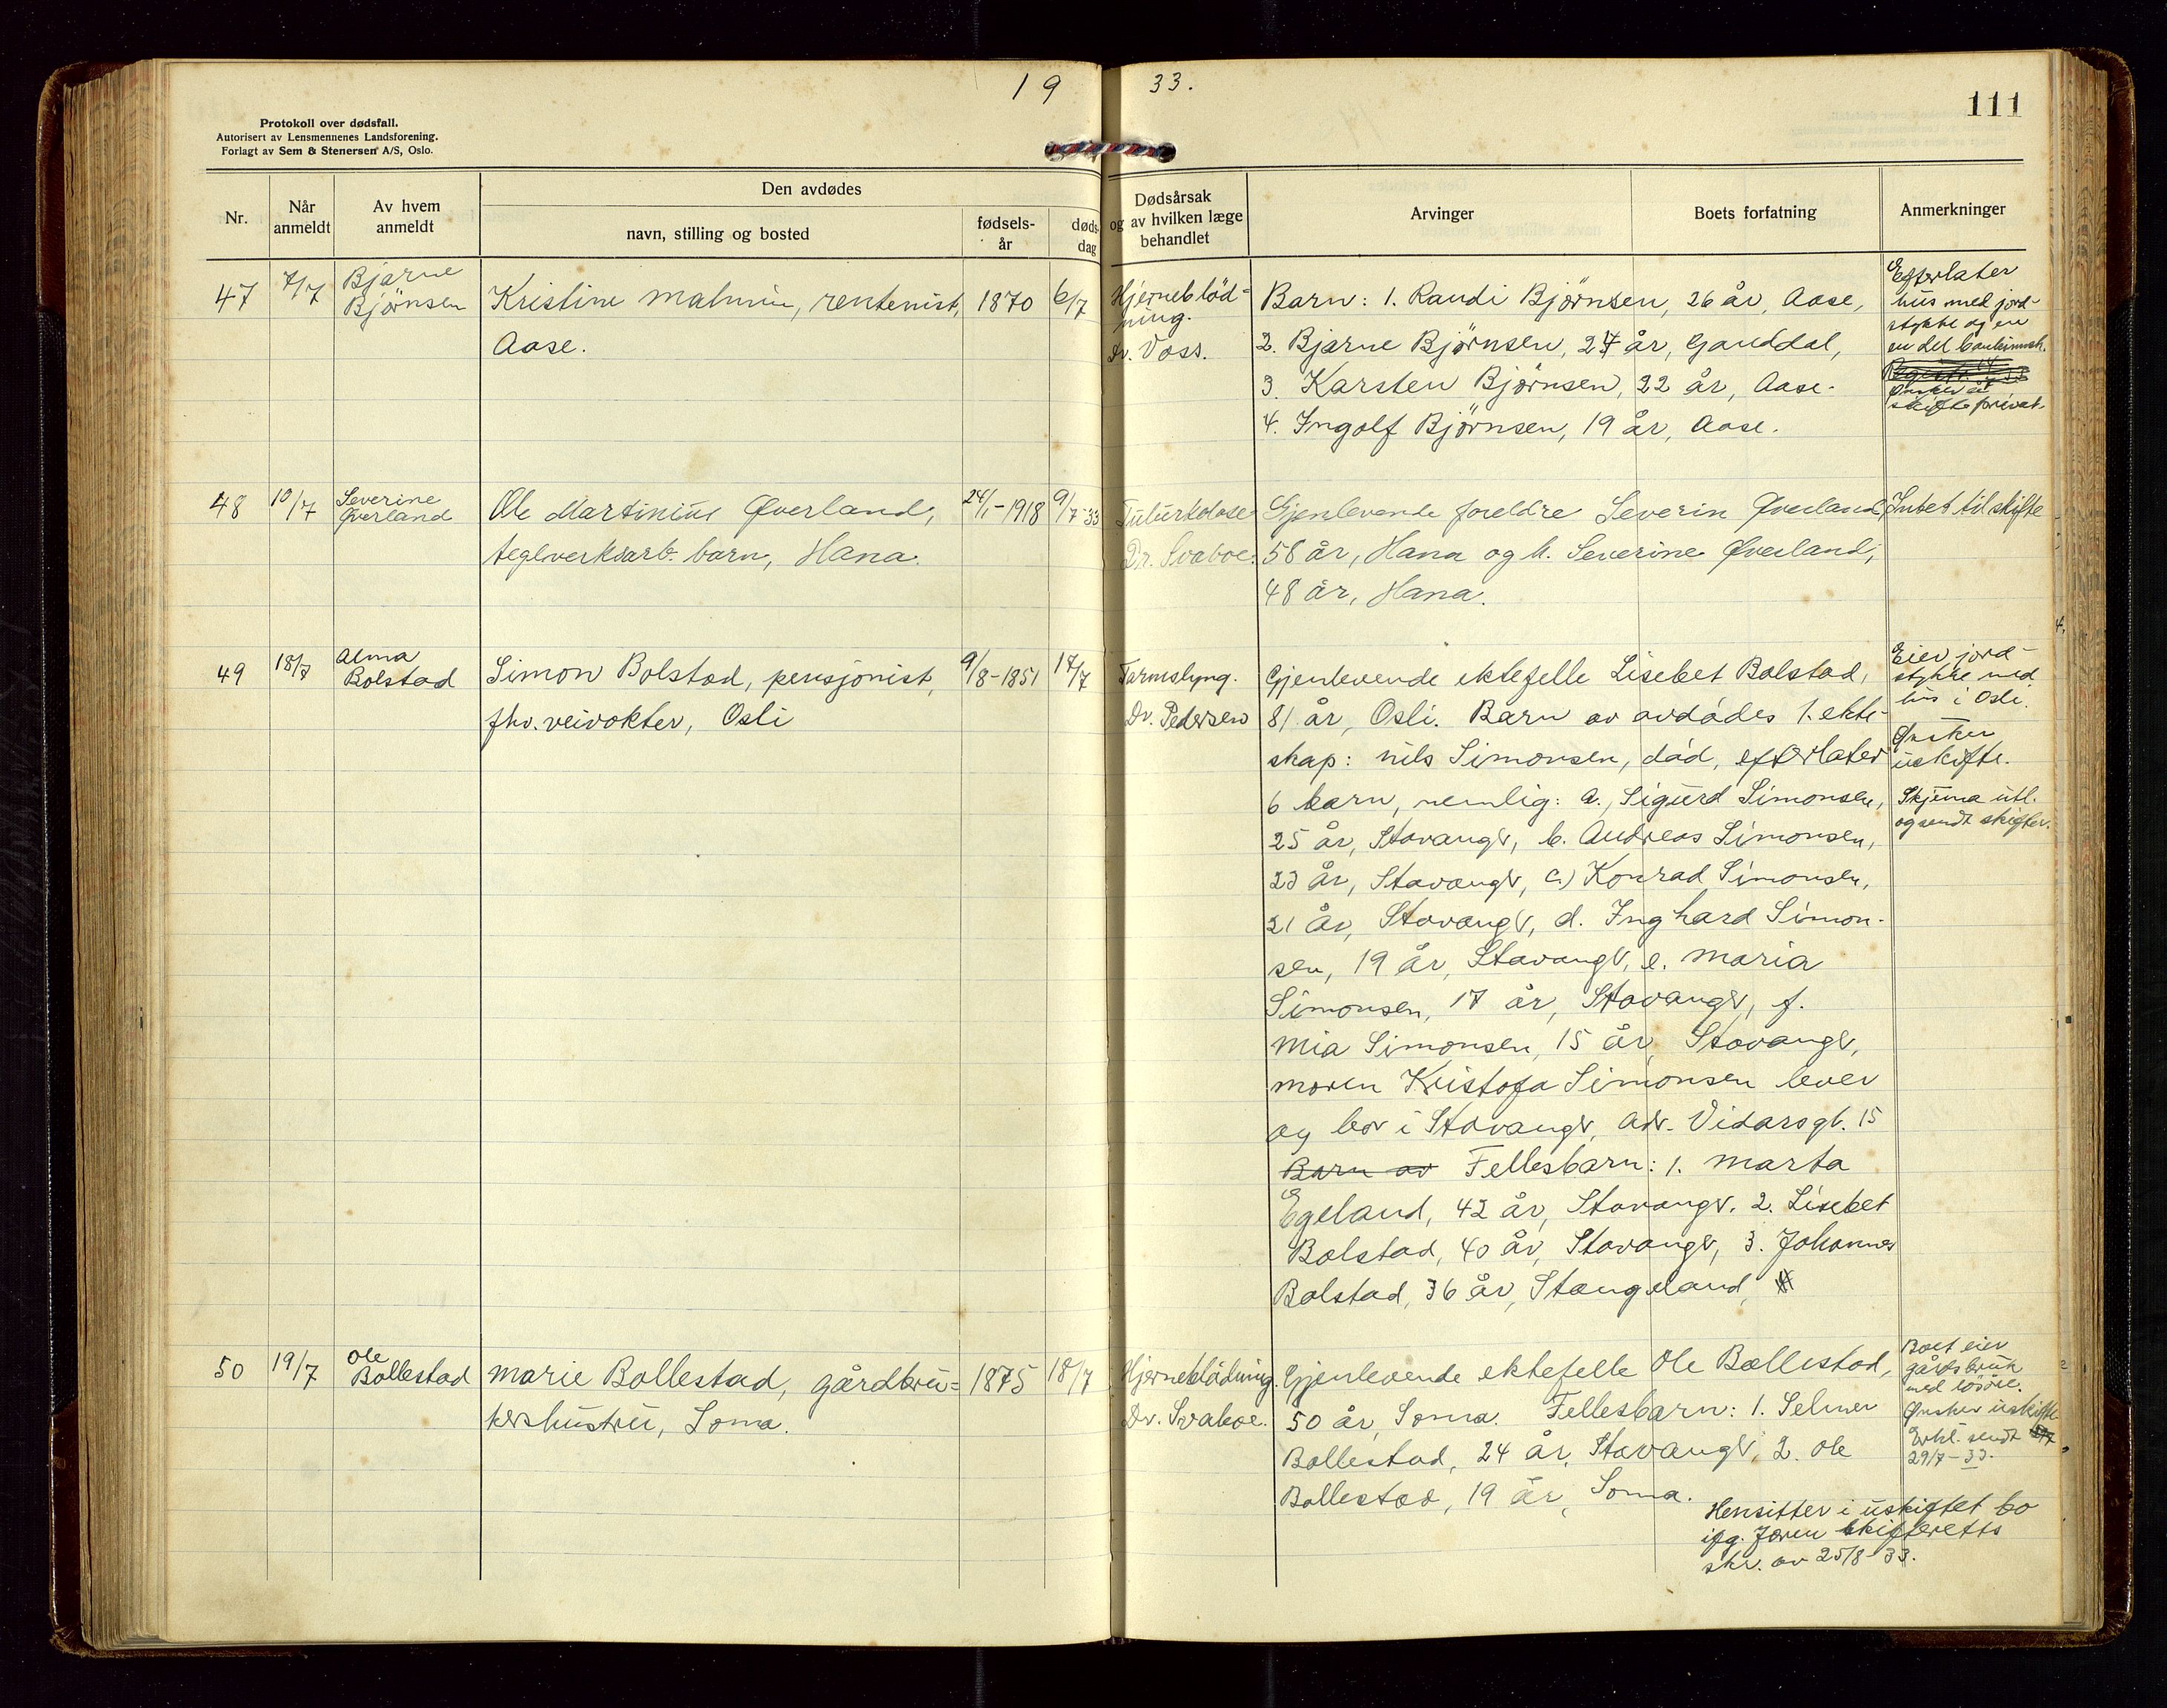 19 33.
111
Protokoll over dødsfall.
Autorisert av Lensmennenes Landsforening.
Forlagt av Sem & Stenersen A/S, Oslo.
Nr.
Når anmeldt
Av hvem anmeldt
Den avdødes
navn, stilling og bosted
fødsels-år
døds dag
Dødsårsak og av hvilken læge behandlet
Arvinger
Boets forfatning
Anmerkninger
47
7/7
Bjarne
Bjørnsen
Kristine Malmin, rentenist,
Aase.
1870
6/7
Hjerneblød-
ning.
Dr. Voss.
Barn: 1. Randi Bjørnsen, 26 år, Aase,
2. Bjarne Bjørnsen, 24 år, Ganddal,
3. Karsten Bjørnsen, 22 år, Aase.
4. Ingolf Bjørnsen, 19 år, Aase.
Efterlater
hus med jord-
stykke og en
en del bankinnsk.
Ønsker å
skifte privat.
48
10/7
Severine
Øverland
Ole Martinius Øverland,
teglverksarb. barn, Hana.
24/1-1918
9/7-33
Tuburkolose
Dr. Svaboe.
Gjenlevende foreldre Severin Øverland,
58 år, Hana og h. Severine Øverland,
48 år, Hana.
Intet til skifte
49
18/7
Alma
Bolstad
Simon Bolstad, pensjonist,
fhv. veivokter, Osli
9/8-1851
17/7
Tarmslyng.
Dr. Pedersen
Gjenlevende ektefelle Lisebet Bolstad,
81 år, Osli. Barn av avdødes 1. ekte-
skap: Nils Simonsen, død, efterlater
6 barn, nemlig: a., Sigurd Simonsen,
25 år, Stavanger, b. Andreas Simonsen,
23 år, Stavanger, c.) Konrad Simonsen,
21 år, Stavanger, d. Inghard Simon-
sen, 19 år, Stavanger, e. Maria
Simonsen, 17 år, Stavanger, f.
Mia Simonsen, 15 år, Stavanger,
moren Kristofa Simonsen lever
og bor i Stavanger, adr. Vidarsgt. 15
Barn av Fellesbarn: 1. Marta
Egeland, 42 år, Stavanger. 2. Lisebet
Bolstad, 40 år, Stavanger, 3. Johannes
Bolstad, 36 år, Stangeland,
Eier jord-
stykke med
hus i Osli.
Ønsker
uskifte.
Skjema utf.
og sendt skifter.
50
19/7
Ole
Bollestad
Marie Bollestad, gårdbru=
kershustru, Soma.
1875
18/7
Hjerneblødning.
Dr. Svaboe.
Gjenlevende ektefelle Ole Bollestad,
50 år, Soma. Fellesbarn: 1. Selmer
Bollestad, 24 år, Stavanger, 2. Ole
Bollestad, 19 år, Soma.
Boet eier
gårdsbruk
med løsøre.
Ønsker uskifte
Erkl. sendt
29/7-33.
Hensitter i uskiftet bo
ifg. Jæren skifteretts
skr. av 25/8-33.